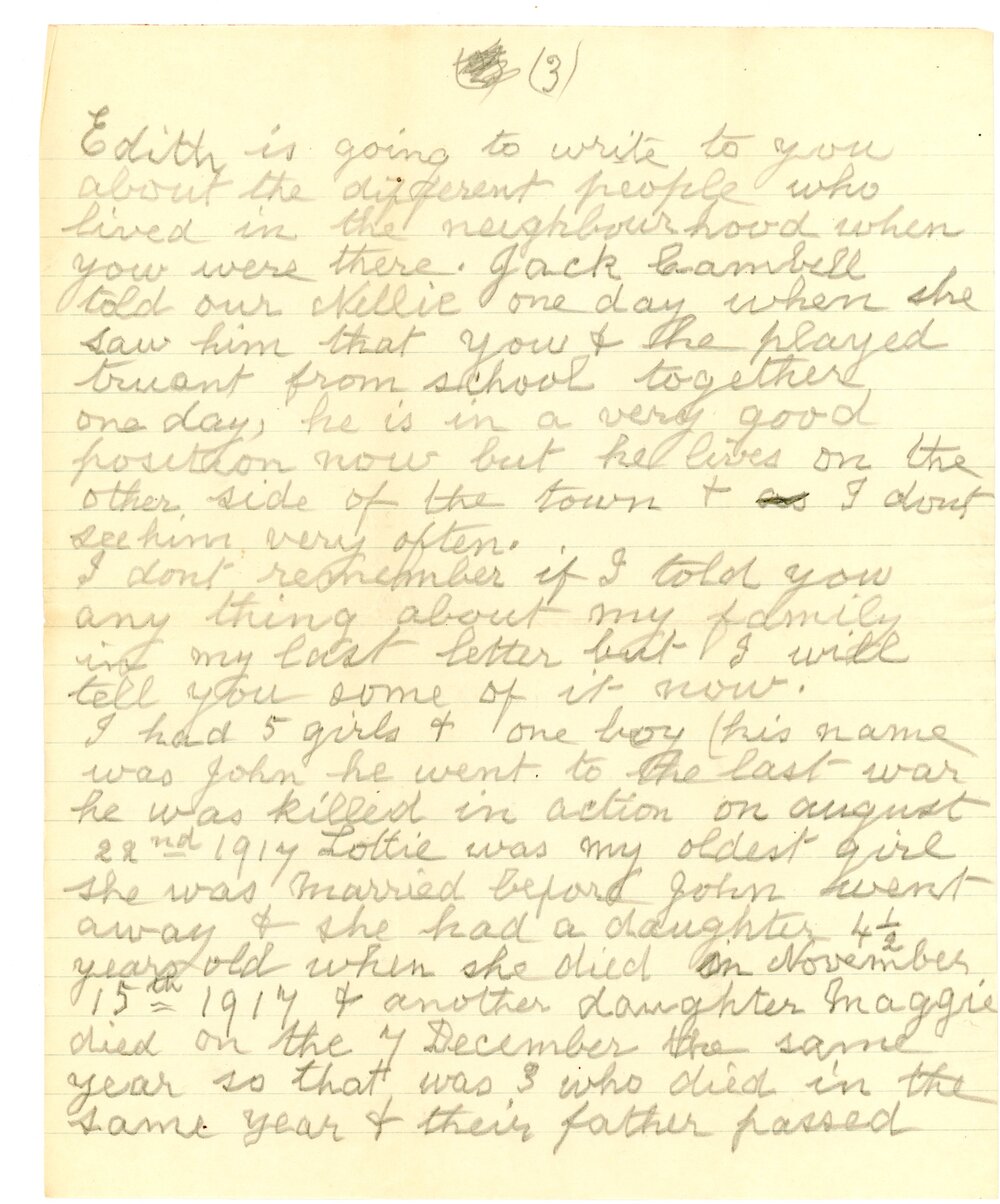 (3)
Edith is going to write to you
about the different people who
lived in the neighbourhood when
you were there. Jack Cambell
told our Nellie one day when she
saw him that you & he played
truant from school together
one day, he is in a very good
position now but he lives on the
other side of the town & as I dont
see him very often.
I dont remember if I told you
any thing about my family
in my last letter but I will
tell you some of it now.
I had 5 girls & one boy (his name
was John he went to the last war
he was killed in action on august
22nd 1917 Lottie was my oldest girl
she was married before John went
away & she had a daughter 4½
years old when she died in November
15th 1917 & another daughter Maggie
died on the 7 December the same
year so that was 3 who died in the
same year & their father passed